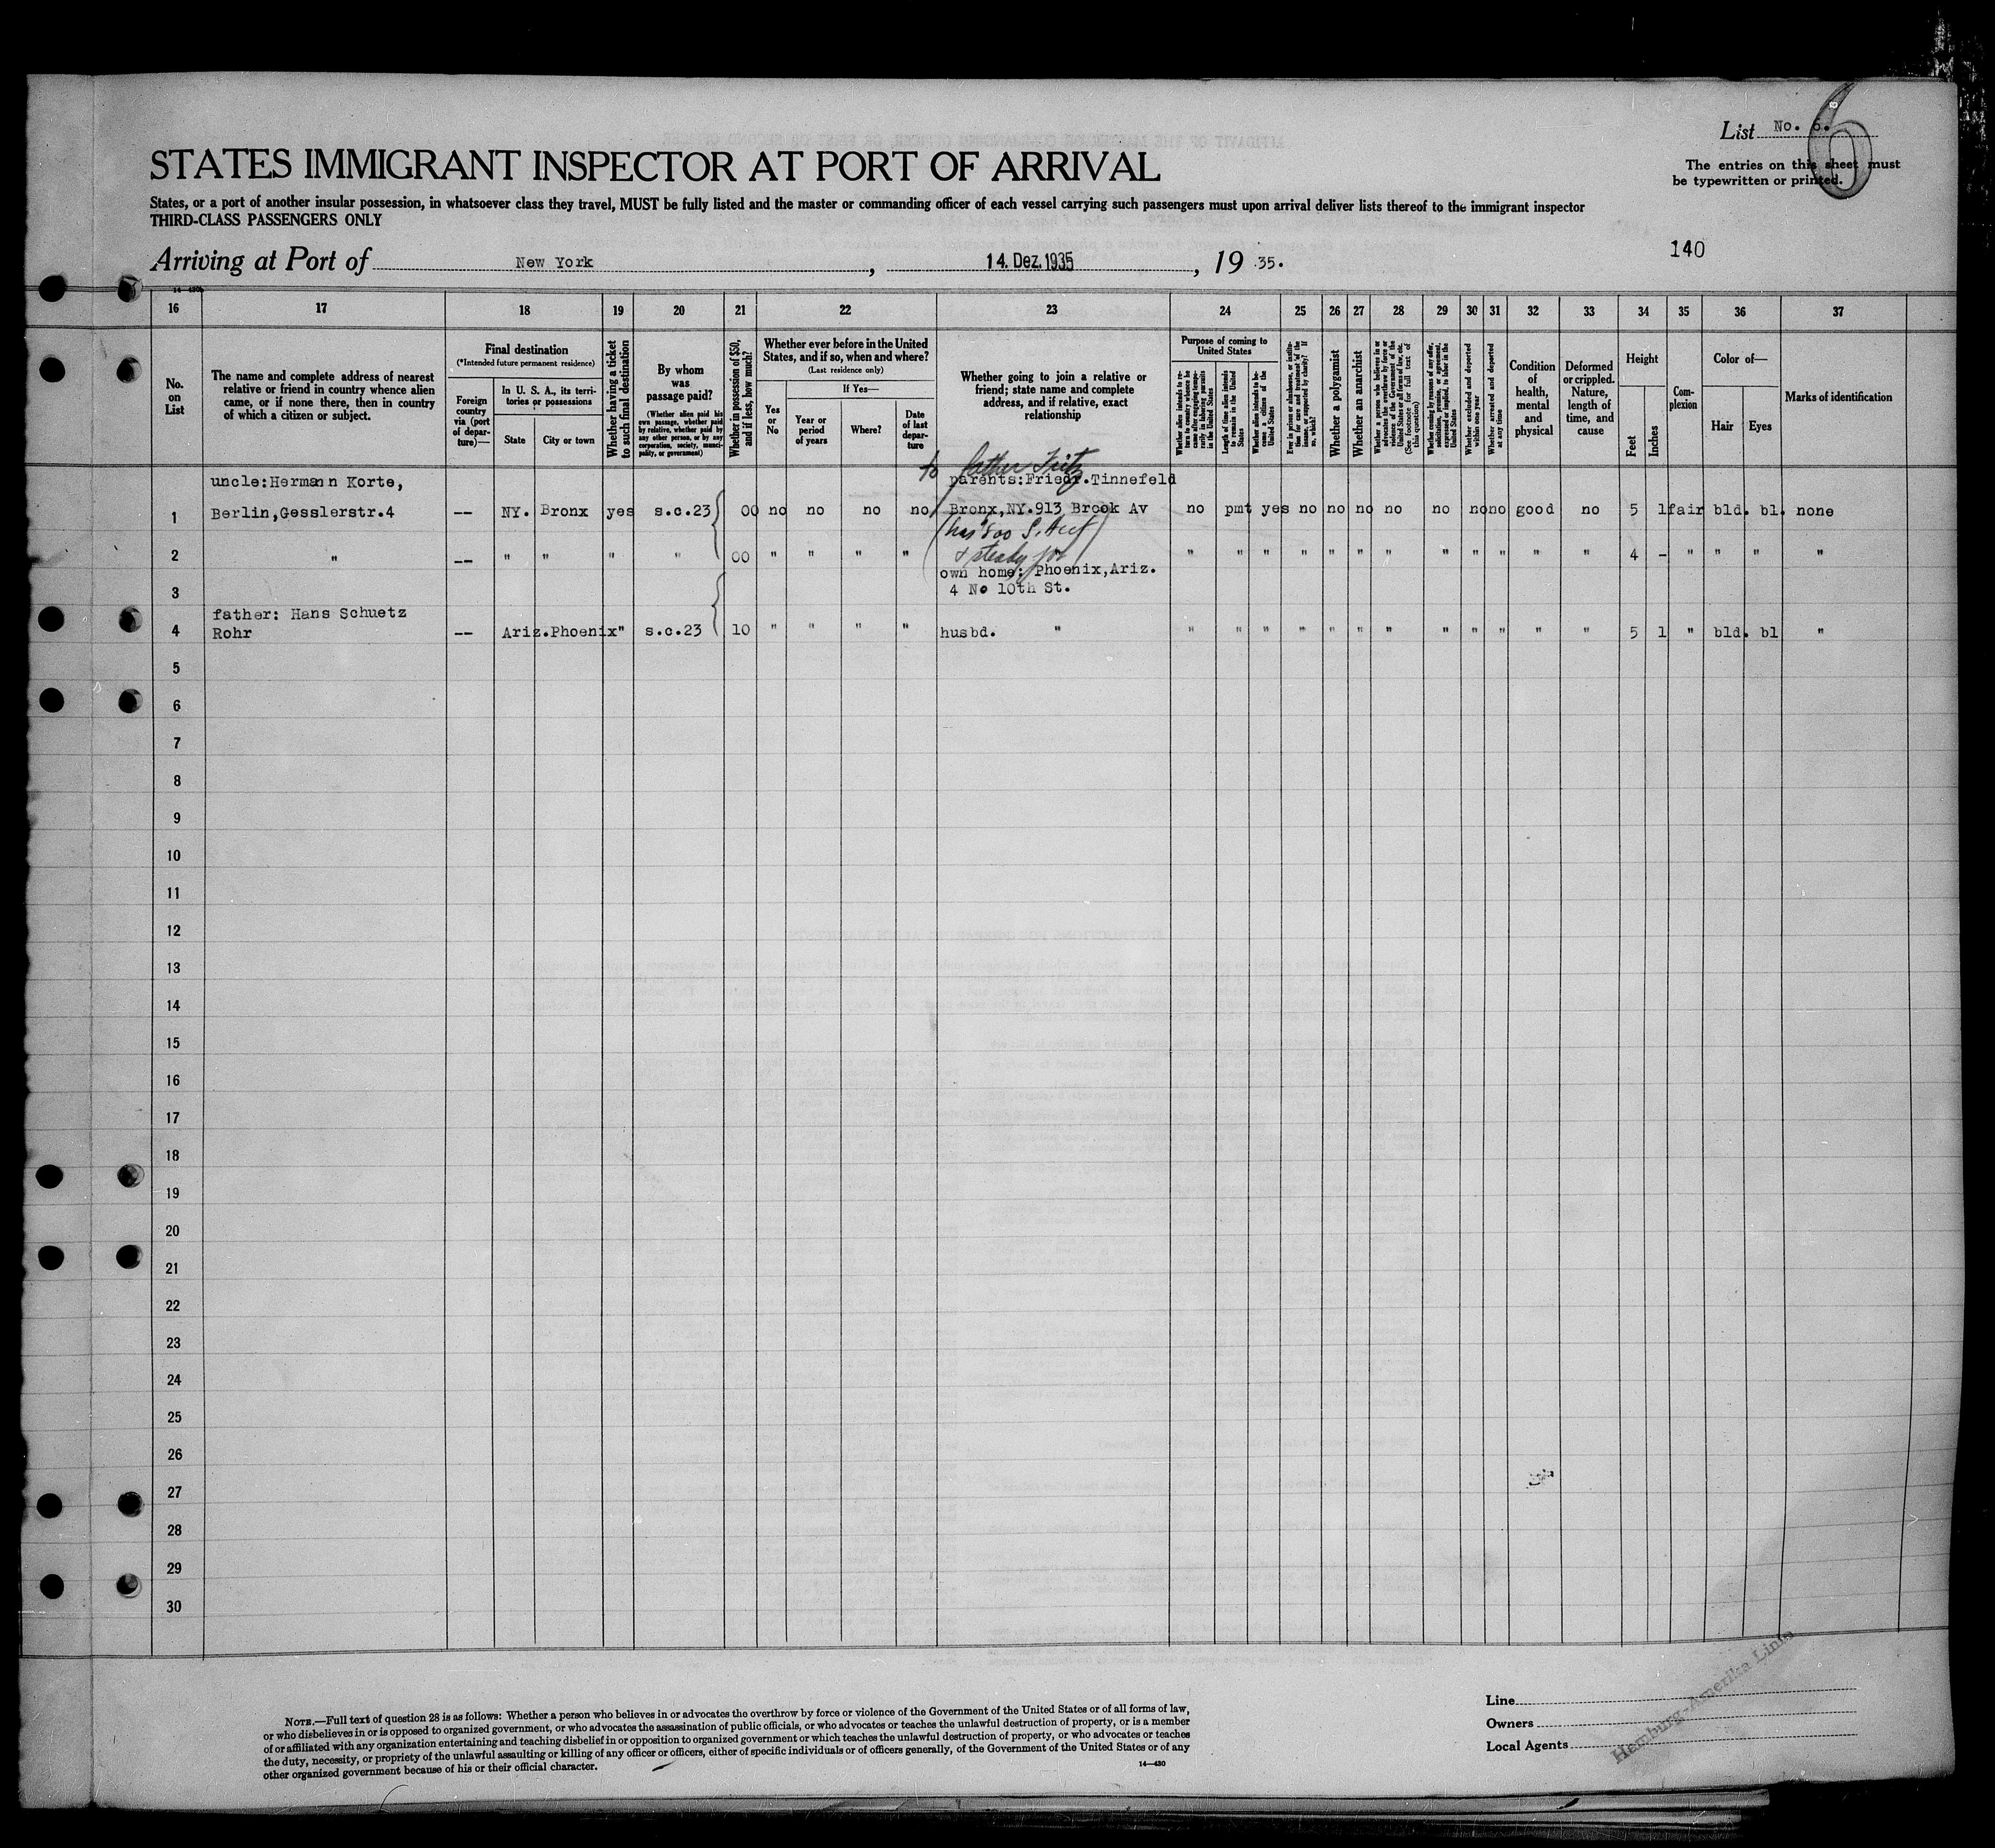 List No. 6.
6
STATES IMMIGRANT INSPECTOR AT PORT OF ARRIVAL
The entries on this sheet must
be typewritten or printed.
States, or a port of another insular possession, in whatsoever class they travel, MUST be fully listed and the master or commanding officer of each vessel carrying such passengers must upon arrival deliver lists thereof to the immigrant inspector
THIRD-CLASS PASSENGERS ONLY
140
Arriving at Port of New York , 14. Dez. 1935 , 19 35.
16 17 18 19 20 21 22 23 24 25 26 27 28 29 30 31 32 33 34 35 36 37
No. on List
The name and complete address of nearest
relative or friend in country whence alien
came, or if none there, then in country
of which a citizen or subject.
Final destination
(*Intended future permanent residence)
Foreign country via (port of departure)—
In U. S. A., its territories or possessions
State
City or town
Whether having a ticket to such final destination
By whom was passage paid?
(Whether alien paid his own passage, whether paid by relative, whether paid by any other person, or by any corporation, society, municipality, or government)
Whether in possession of $50, and if less, how much?
Whether ever before in the United
States, and if so, when and where?
(Last residence only)
Yes or No
If Yes—
Year or period of years
Where?
Date of last departure
Whether going to join a relative or
friend; state name and complete
address, and if relative, exact
relationship
Purpose of coming to
United States
Length of time alien intends to remain in the United States
Whether alien intends to become a citizen of the United States
Whether a polygamist
Whether an anarchist
(See footnote for full text of this question)
Whether excluded and deported within one year
Whether arrested and deported at any time
Condition of health, mental and physical
Deformed or crippled. Nature, length of time, and cause
Height
Feet
Inches
Complexion
Color of—
Hair
Eyes
Marks of identification
to father Fritz
uncle:Hermann Korte, parents:Friedr.Tinnefeld
1 Berlin,Gesslerstr.4 -- NY. Bronx yes s.c.23 00 no no no no Bronx,NY.913 Brook Av no pmt yes no no no no no no no good no 5 1 fair bld. bl. none
2 " -- " " " " 00 " " " " & steady job " " " " " " " " " " " " 4 - " " " "
own home: Phoenix,Ariz.
3 4 No 10th St.
father: Hans Schuetz
4 Rohr -- Ariz.Phoenix " s.c.23 10 " " " " husbd. " " " " " " " " " " " " " 5 1 " bld. bl "
5
6
7
8
9
10
11
12
13
14
15
16
17
18
19
20
21
22
23
24
25
26
27
28
29
30
NOTE.—Full text of question 28 is as follows: Whether a person who believes in or advocates the overthrow by force or violence of the Government of the United States or of all forms of law,
or who disbelieves in or is opposed to organized government, or who advocates the assassination of public officials, or who advocates or teaches the unlawful destruction of property, or is a member
of or affiliated with any organization entertaining and teaching disbelief in or opposition to organized government or which teaches the unlawful destruction of property, or who advocates or teaches
the duty, necessity, or propriety of the unlawful assaulting or killing of any officer or officers, either of specific individuals or of officers generally, of the Government of the United States or of any
other organized government because of his or their official character.
14—430
Line
Owners
Local Agents
Hamburg-Amerika Linie